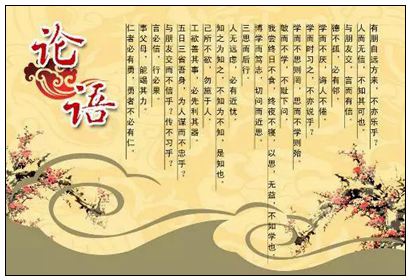 论语
有朋自远方来，不亦乐乎？
人而无信，不知其可也。
与朋友交，言而有信
德不孤，必有邻。
学而不厌，诲人不倦。
学而时习之，不亦说乎？
学而不思则罔，思而不学则殆。
敏而不学，不耻下问。
我尝终日不食，终夜不寝，以思，无益，不如学也。
博学而笃志，切问而近思。
三思而后行。
人无远虑，必有近忧。
知之为知之，不知为不知，是知也
己所不欲，勿施于人。
工欲善其事，必先利其器。
五日三省吾身，为人谋而不忠乎？
与朋友交而不信乎？传不习乎？
言必信，行必果。
事父母，能竭其力。
仁者必有勇，勇者不必有仁。